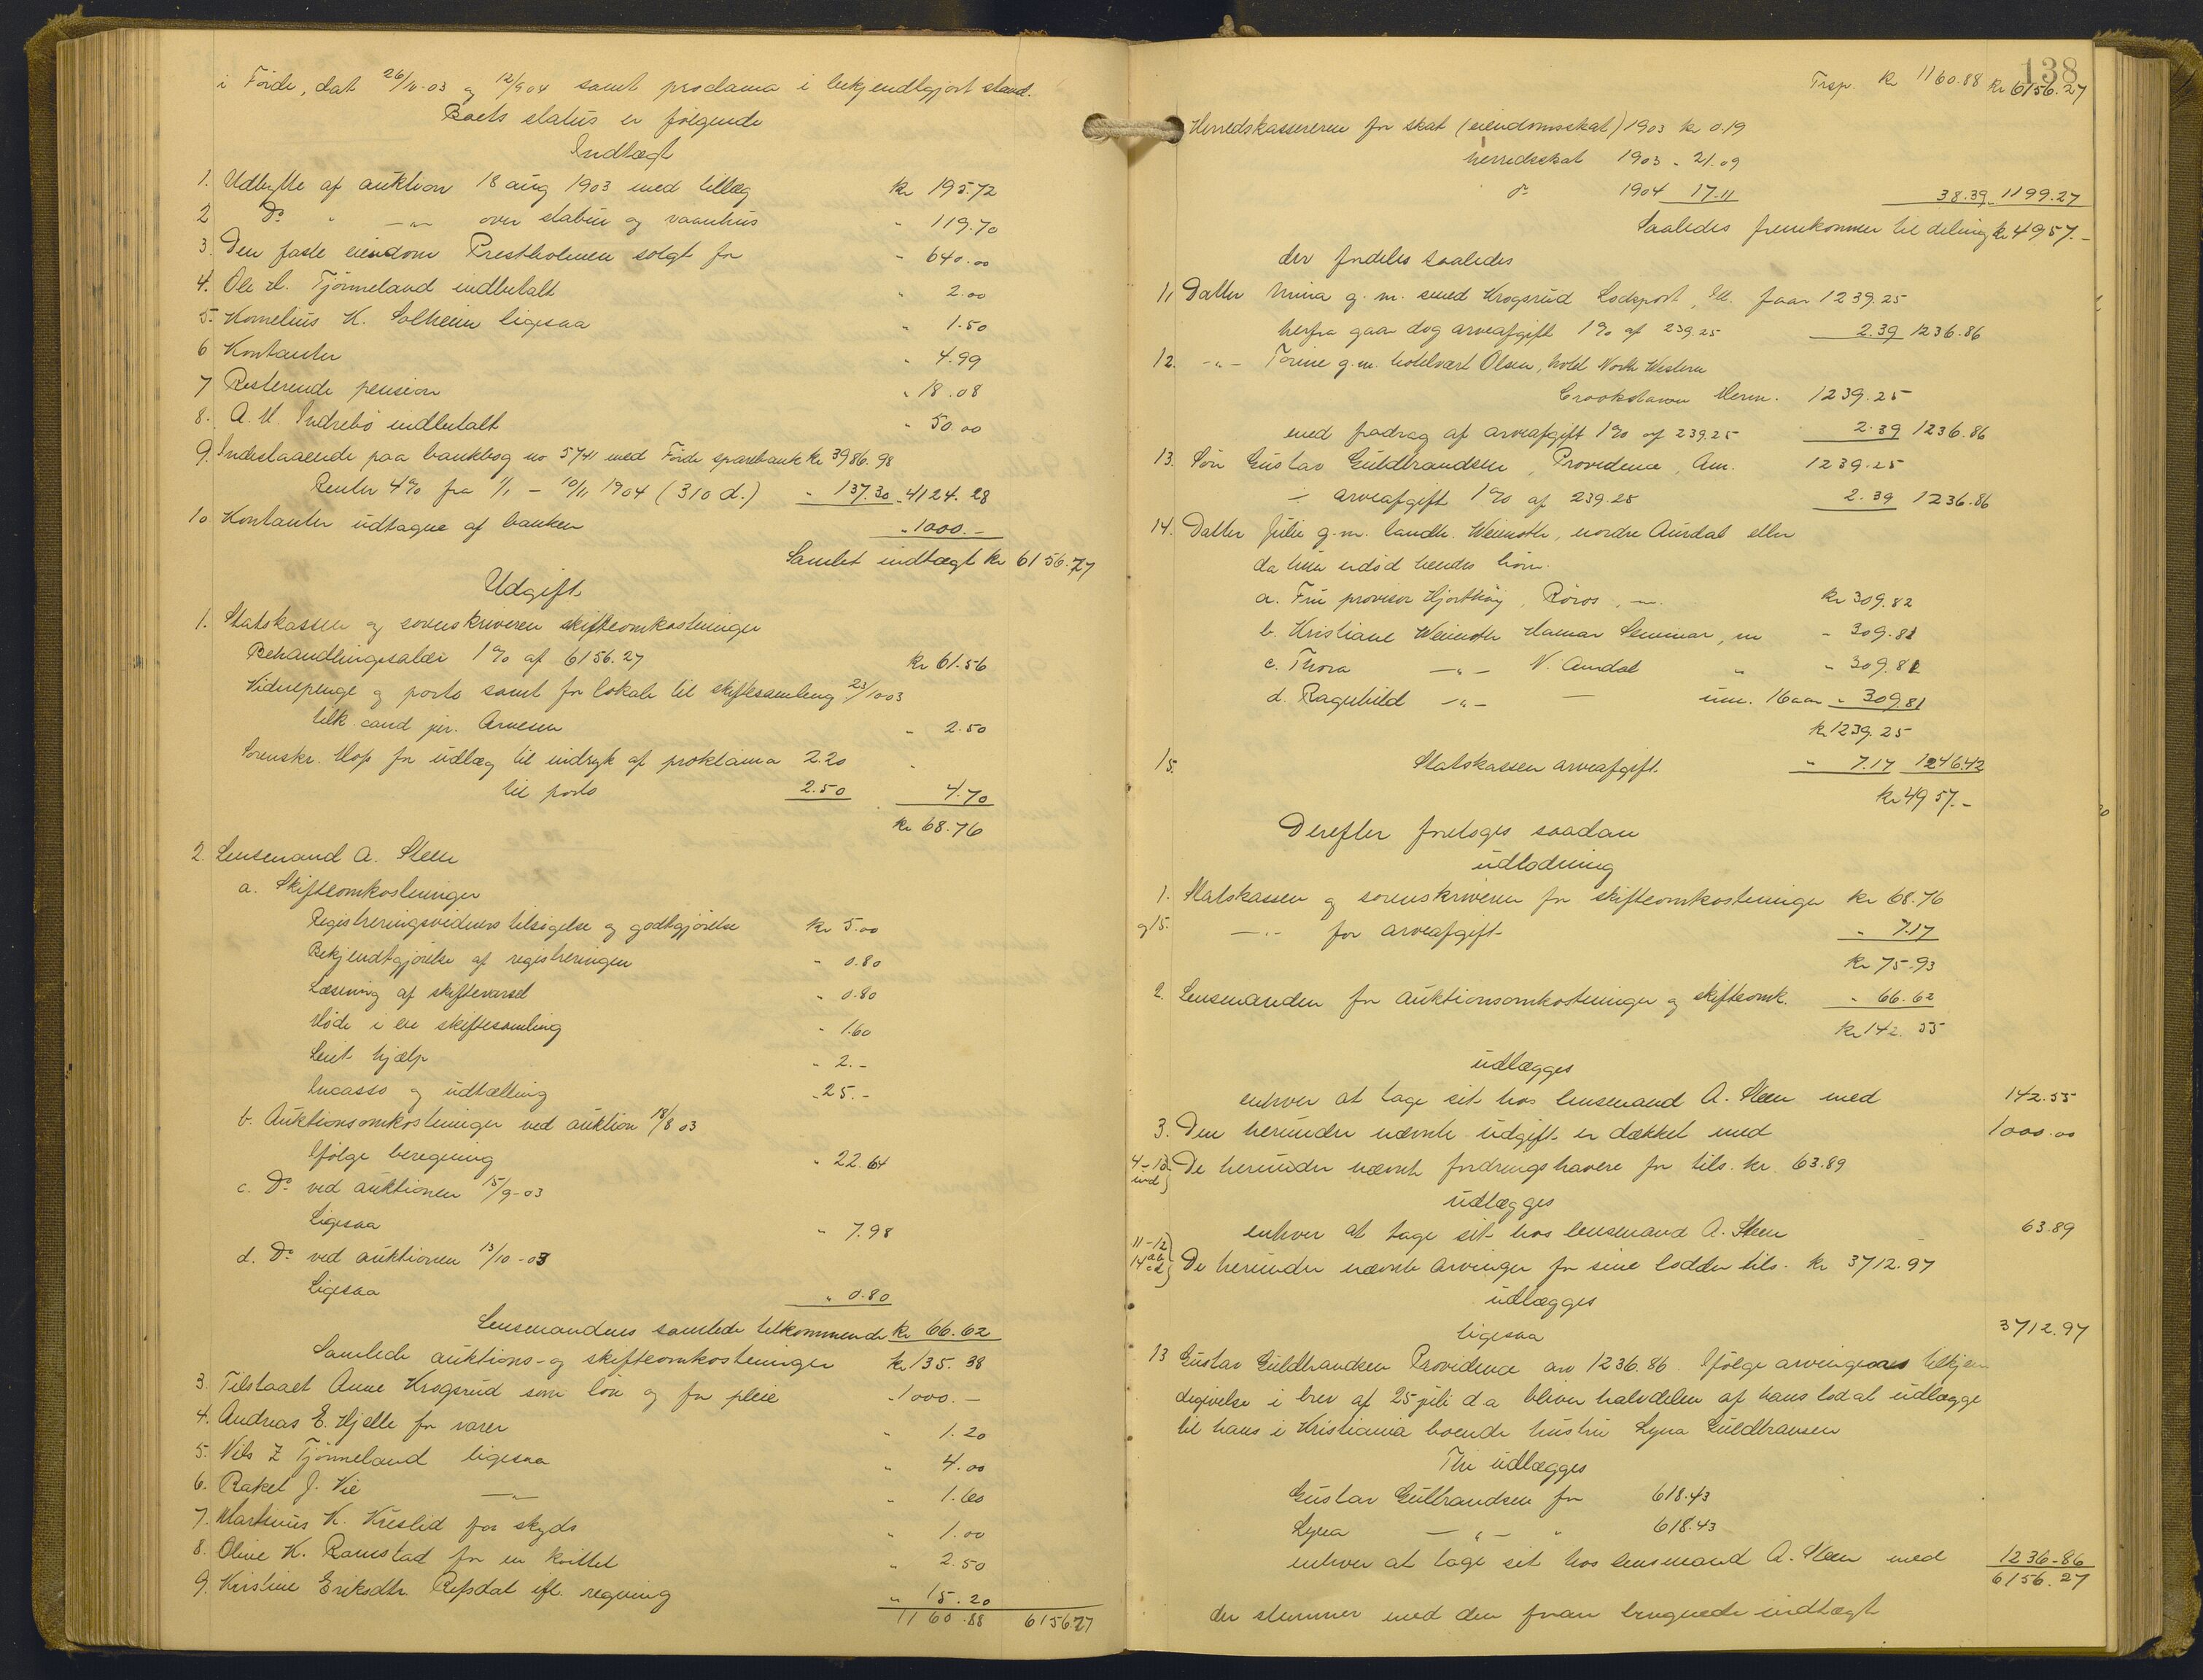 i Förde, dat 26/11-03 og 12/9 04 samt proclama i bekjendtgjort stand.
Boets status er følgende
Indtægt
1. Udbytte af auktion 18 aug 1903 med tillæg kr 195.72
2 Do " -"- over stabur og vaanhus " 119.70
3. Den faste eiendom Prestholmen solgt for - 640.00
4. Ole A. Tjönneland indbetalt " 2.00
5. Kornelius K. Solheim ligesaa " 1.50
6 Kontanter " 4.99
7 Resterende pension " 18.08
8. A. M. Indrebö indbetalt " 50.00
9. Indestaaende paa bankbog no 5741 med Förde sparebank kr 3986.98
Renter 4% fra 1/1 - 10/11 1904 (310 d.) " 137.30 " 4124.28
10 Kontanter udtagne af banken " 1000.-
Samlet indtægt kr 6156.27
Udgift
1. Statskassen og sorenskriveren skifteomkostninger
Behandlingssalær 1% af 6156.27 kr 61.56
Vidnepenge og porto samt for lokale til skiftesamling 23/10 03
tilk. cand jur. Arnesen " 2.50
Sorenskr. Mop for udlæg til indryk af proklama 2.20
til porto 2.50 " 4.70
kr 68.76
2. Lensmand A. Steen
a. Skifteomkostninger
Registreringsvidners tilsigelse og godtgjörelse kr 5.00
Bekjendtgjörelse af registreringen - 0.80
Læsning af skiftevarsel " 0.80
Möde i en skiftesamling - 1.60
Leiet hjælp - 2.-
Incasso og udtælling - 25.-
b. Auktionsomkostninger ved auktion 18/8 03
Ifölge beregning " 22.64
c. Do ved auktionen 15/9-03
Ligesaa " 7.98
d. Do ved auktionen 13/10-03
Ligesaa " 0.80
Lensmandens samlede tilkommende kr 66.62
Samlede auktions- og skifteomkostninger kr 135.38
3. Tilstaaet Anne Krogsrud som lön og for pleie - 1000.-
4. Andreas E. Hjelle for varer " 1.20
5. Nils Z Tjönneland ligesaa " 4.00
6. Rakel J. Vie -"- " 1.60
7. Martinus K. Kvislid for skyds " 1.00
8. Oline K. Ramstad for en kvittel " 2.50
9. Kristine Eriksdtr. Refsdal ifl. regning " 15.20
1160.88 6156.27
138
Trsp. kr 1160.88 kr 6156.27
Herredskassereren for skat (eiendomsskat) 1903 kr 0.19
herredsskat 1903 - 21.09
do 1904 17.11 38.39 " 1199.27
Saaledes fremkommer til deling kr 4957.-
der fordeles saaledes
11. Datter Mina g. m. smed Krogsrud Lockport, Ill. faar 1239.25
herfra gaar dog arveafgift 1% af 239.25 2.39 1236.86
12. -"- Torine g.m. hotelvært Olsen, hotel North Western
Crookstown Menn. 1239.25
med fradrag af arveafgift 1% af 239.25 2.39 1236.86
13. Sön Gustav Guldbrandsen, Providence, Am. 1239.25
÷ arveafgift 1% af 239.25 2.39 1236.86
14. Datter Julie g.m. landh. Weinoth, nordre Aurdal eller
da hun er död hendes börn.
a. Fru provisor Hjorthöy, Röros, m. kr 309.82
b. Kristiane Weinoth Hamar Seminar, m - 309.81
c. Thora -"- N. Aurdal " - 309.81
d. Ragnhild -"- — um. 16 aar " 309.81
kr 1239.25
15. Statskassen arveafgift. " 7.17 1246.42
kr 4957.-
Derefter foretoges saadan
udlodning
1. Statskassen og sorenskriveren for skifteomkostninger kr 68.76
og 15. -"- for arveafgift - " 7.17
kr 75.93
2. Lensmanden for auktionsomkostninger og skifteomk. " 66.62
kr 142.55
udlægges
enhver at tage sit hos lensmand A. Steen med 142.55
3. Den herunder nævnte udgift er dækket med 1000.00
4-10 incl } De herunder nævnte fordringshavere for tils. kr. 63.89
udlægges
enhver at tage sit hos lensmand A. Steen 63.89
11-12 14 ab cd } De herunder nævnte arvinger for sine lodder tils. kr 3712.97
udlægges
ligesaa 3712.97
13 Gustav Guldbrandsen Providence arv 1236.86. Ifölge arvingens tilkjen
degivelse i brev af 25 juli d a bliver halvdelen af hans lod at udlægge
til hans i Kristiania boende hustru Lyna Guldbransen
Thi udlægges
Gustav Gulbrandsen for 618.43
Lyna -"- " 618.43
enhver at tage sit hos lensmand A. Steen med 1236.86
6156.27
der stemmer med den foran beregnede indtægt